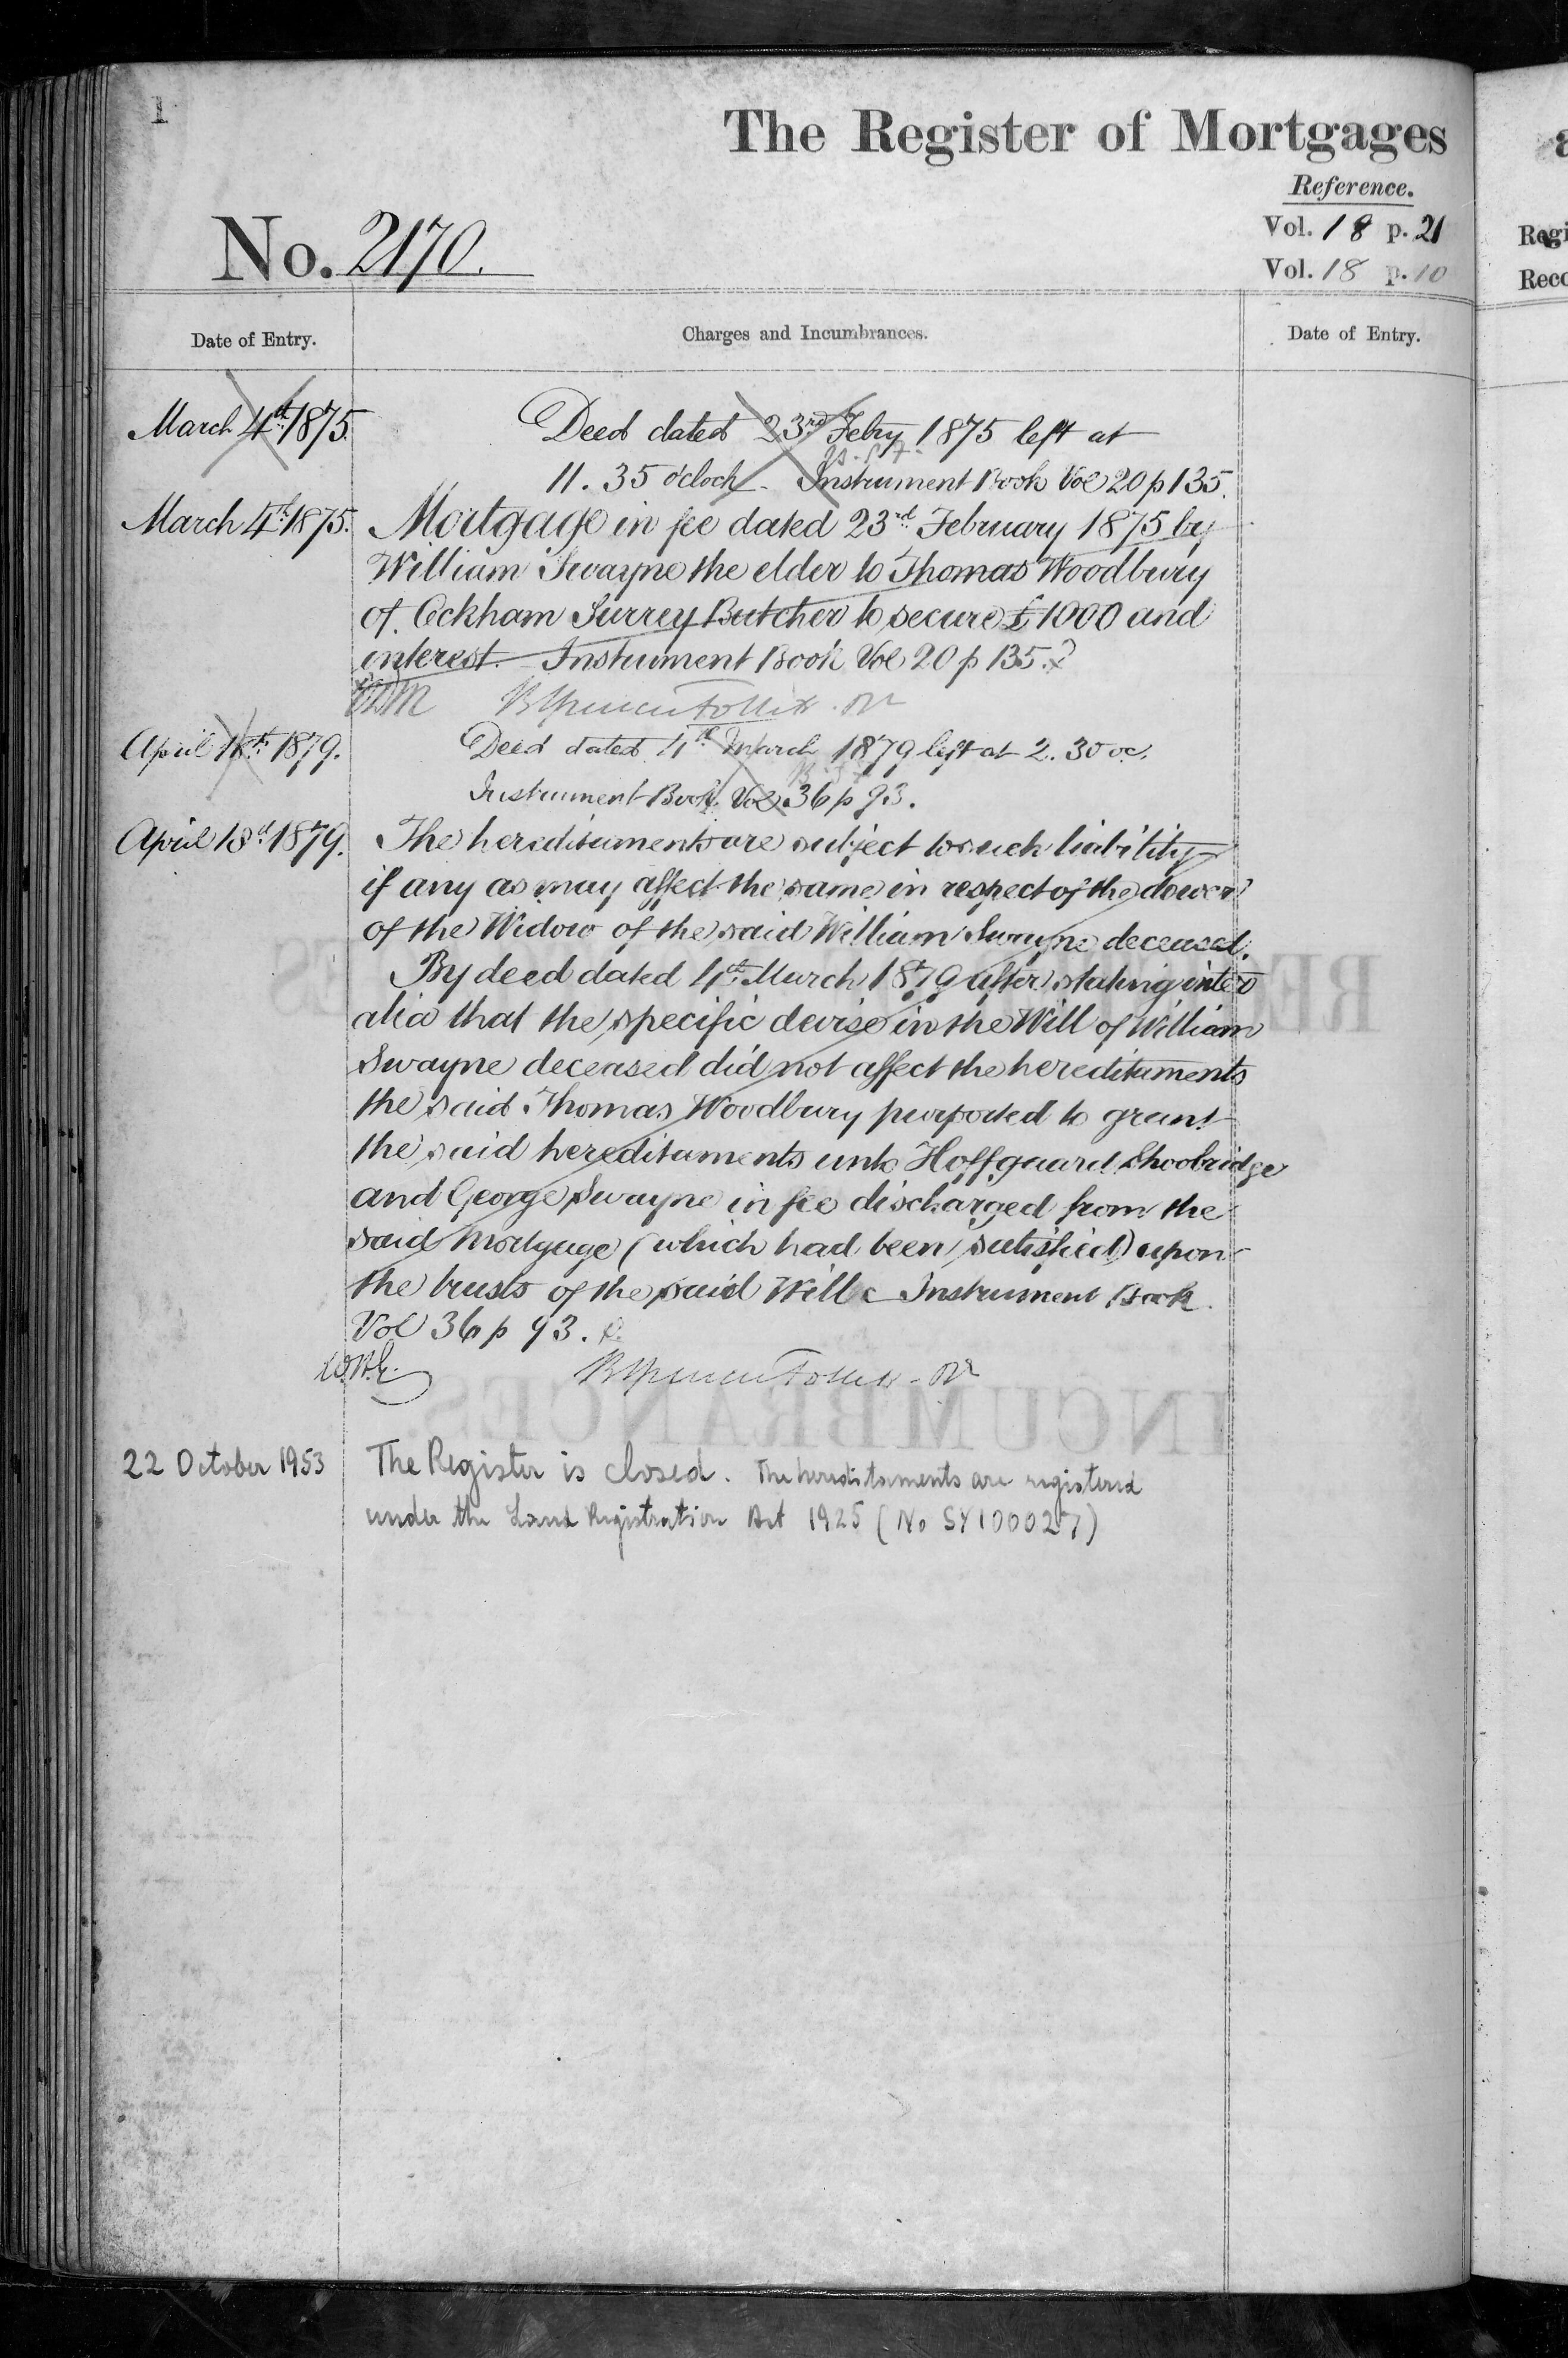 1
The Register of Mortgages
Reference.
Vol. 18 p. 21
No. 2170.
Vol. 18 p. 10
Regi
Reco
Date of Entry.
Charges and Incumbrances.
Date of Entry.
March 4th 1875.
Deed dated 23rd Febry 1875 left at
11. 35 o'clock. Instrument Book Vol 20 p 135.
March 4th 1875.
Mortgage in fee dated 23rd February 1875 by
William Swayne the elder to Thomas Woodbury
of Ockham Surrey Butcher to secure £1000 and
interest. Instrument Book Vol 20 p 135.
April 18th 1879.
Deed dated 4th March 1879 left at 2. 30 oc.
Instrument Book Vol 36 p 93.
April 18th 1879.
The hereditaments are subject to such liability
if any as may affect the same in respect of the dower
of the Widow of the said William Swayne deceased.
By deed dated 4th March 1879 after stating inter
alia that the specific devise in the Will of William
Swayne deceased did not affect the hereditaments
the said Thomas Woodbury purported to grant
the said hereditaments unto Hoffgaard Shoobridge
and George Swayne in fee discharged from the
said Mortgage (which had been satisfied) upon
the trusts of the said Will Instrument Book
Vol 36 p 93.
22 October 1953
The Register is closed. The hereditaments are registered
under the Land Registration Act 1925 (No SY100027)